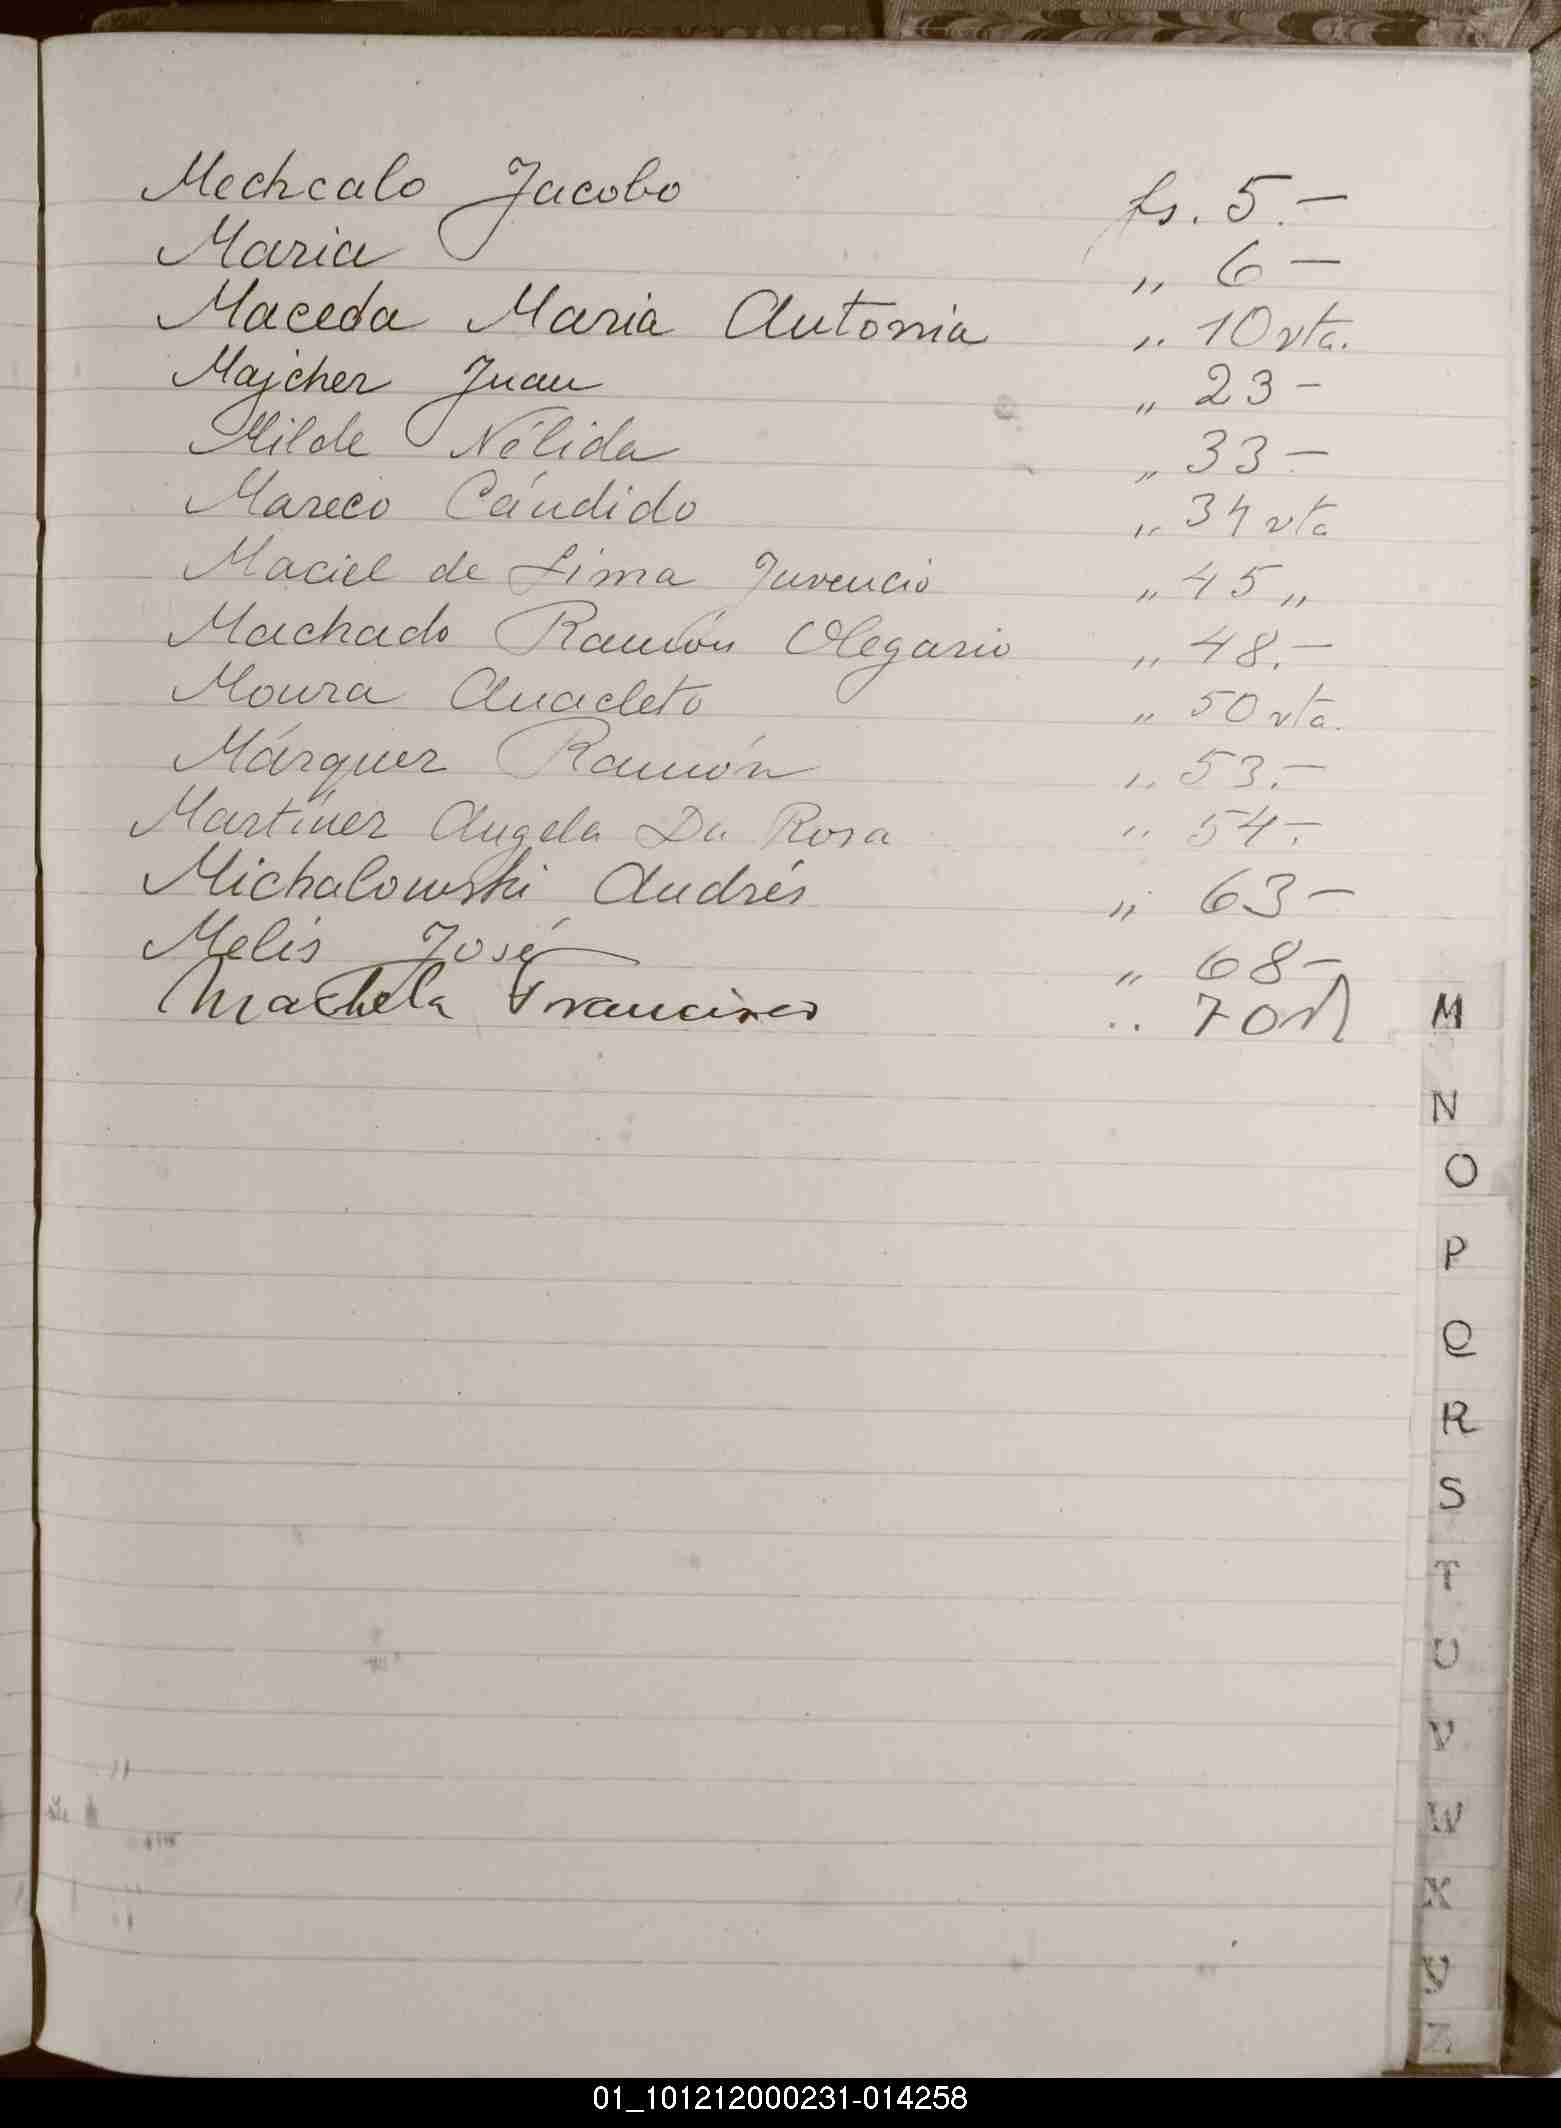 Mechcalo Jacobo fs. 5.—
Maria " 6 —
Maceda Maria Antonia " 10 vta.
Majcher Juan " 23 —
Milde Nélida " 33 —
Mareco Cándido " 34 vta
Maciel de Lima Juvencio " 45 "
Machado Ramón Olegario " 48.—
Moura Anacleto " 50 vta.
Márquez Ramón " 53.—
Martínez Angela Da Rosa " 54 —
Michalowski Andrés " 63 —
Melis José " 68 —
Francisco " 70
M
N
O
P
Q
R
S
T
U
V
W
X
Y
Z
01_101212000231-014258